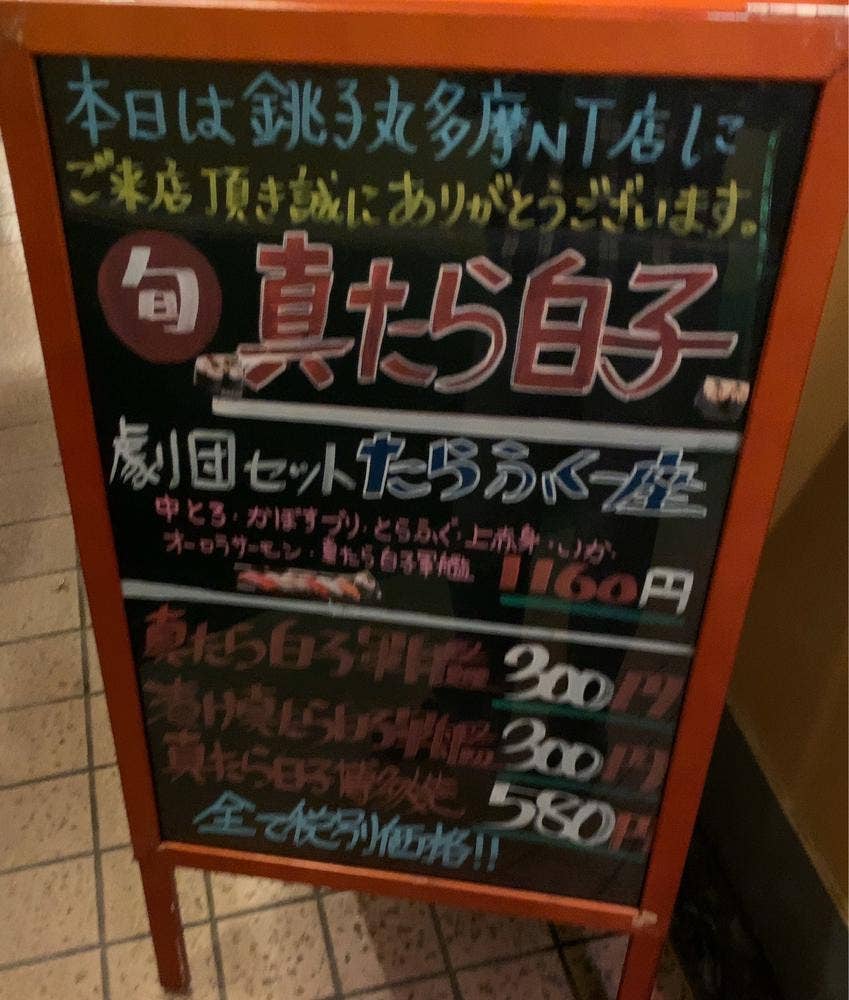 本日は銚子丸多摩NT店に
ご来店頂き誠にありがとうございます。
旬 真たら白子
劇団セット たらふく一座
中とろ・かぼすブリ・とらふぐ・上赤身・いか・
オーロラサーモン・真たら白子軍艦
1160円
真たら白子軍艦 300円
真たら白子軍艦 300円
真たら白子 580円
全て税別価格!!